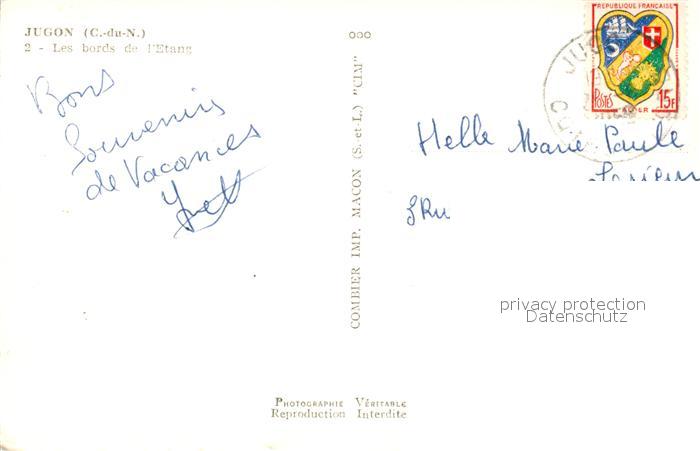 JUGON (C.-du-N.)
2 - Les bords de l'Etang
Bons
Souvenirs
de Vacances
ooo
COMBIER IMP. MACON (S.-et-L.) "CIM"
REPUBLIQUE FRANÇAISE
POSTES ALGER 15F
JUGON
Helle Marie Paule
privacy protection
Datenschutz
PHOTOGRAPHIE VÉRITABLE
Reproduction Interdite